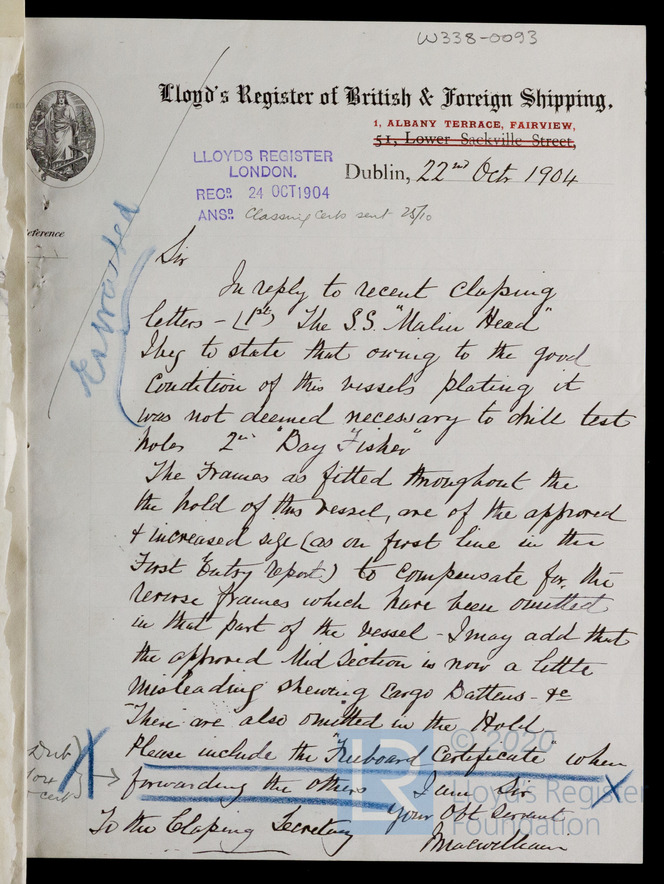 W338-0093
Lloyd's Register of British & Foreign Shipping,
1, ALBANY TERRACE, FAIRVIEW,
51, Lower Sackville Street,
Dublin, 22nd Oct 1904
LLOYDS REGISTER
LONDON.
RECD. 24 OCT 1904
ANSD. Classing Certs sent 25/10
eference
Extracted
Sir
In reply to recent Classing
letters - (1st) The S.S. "Malin Head"
I beg to state that owing to the good
Condition of this vessels plating it
was not deemed necessary to drill test
holes 2nd "Bay Fisher"
The Frames as fitted throughout the
the hold of this vessel, are of the approved
& increased size (as on first line in the
First Entry report.) to compensate for the
reverse frames which have been omitted
in that part of the vessel - I may add that
the approved Mid Section is now a little
misleading shewing Cargo Battens - &c
There are also omitted in the Hold
Please include the "Freeboard Certificate" when
forwarding the others I am Sir
Your Obt Servant
To the Classing Secretary
JMacwilliam
Dub
cert
LR
© 2020
Lloyd's Register
Foundation